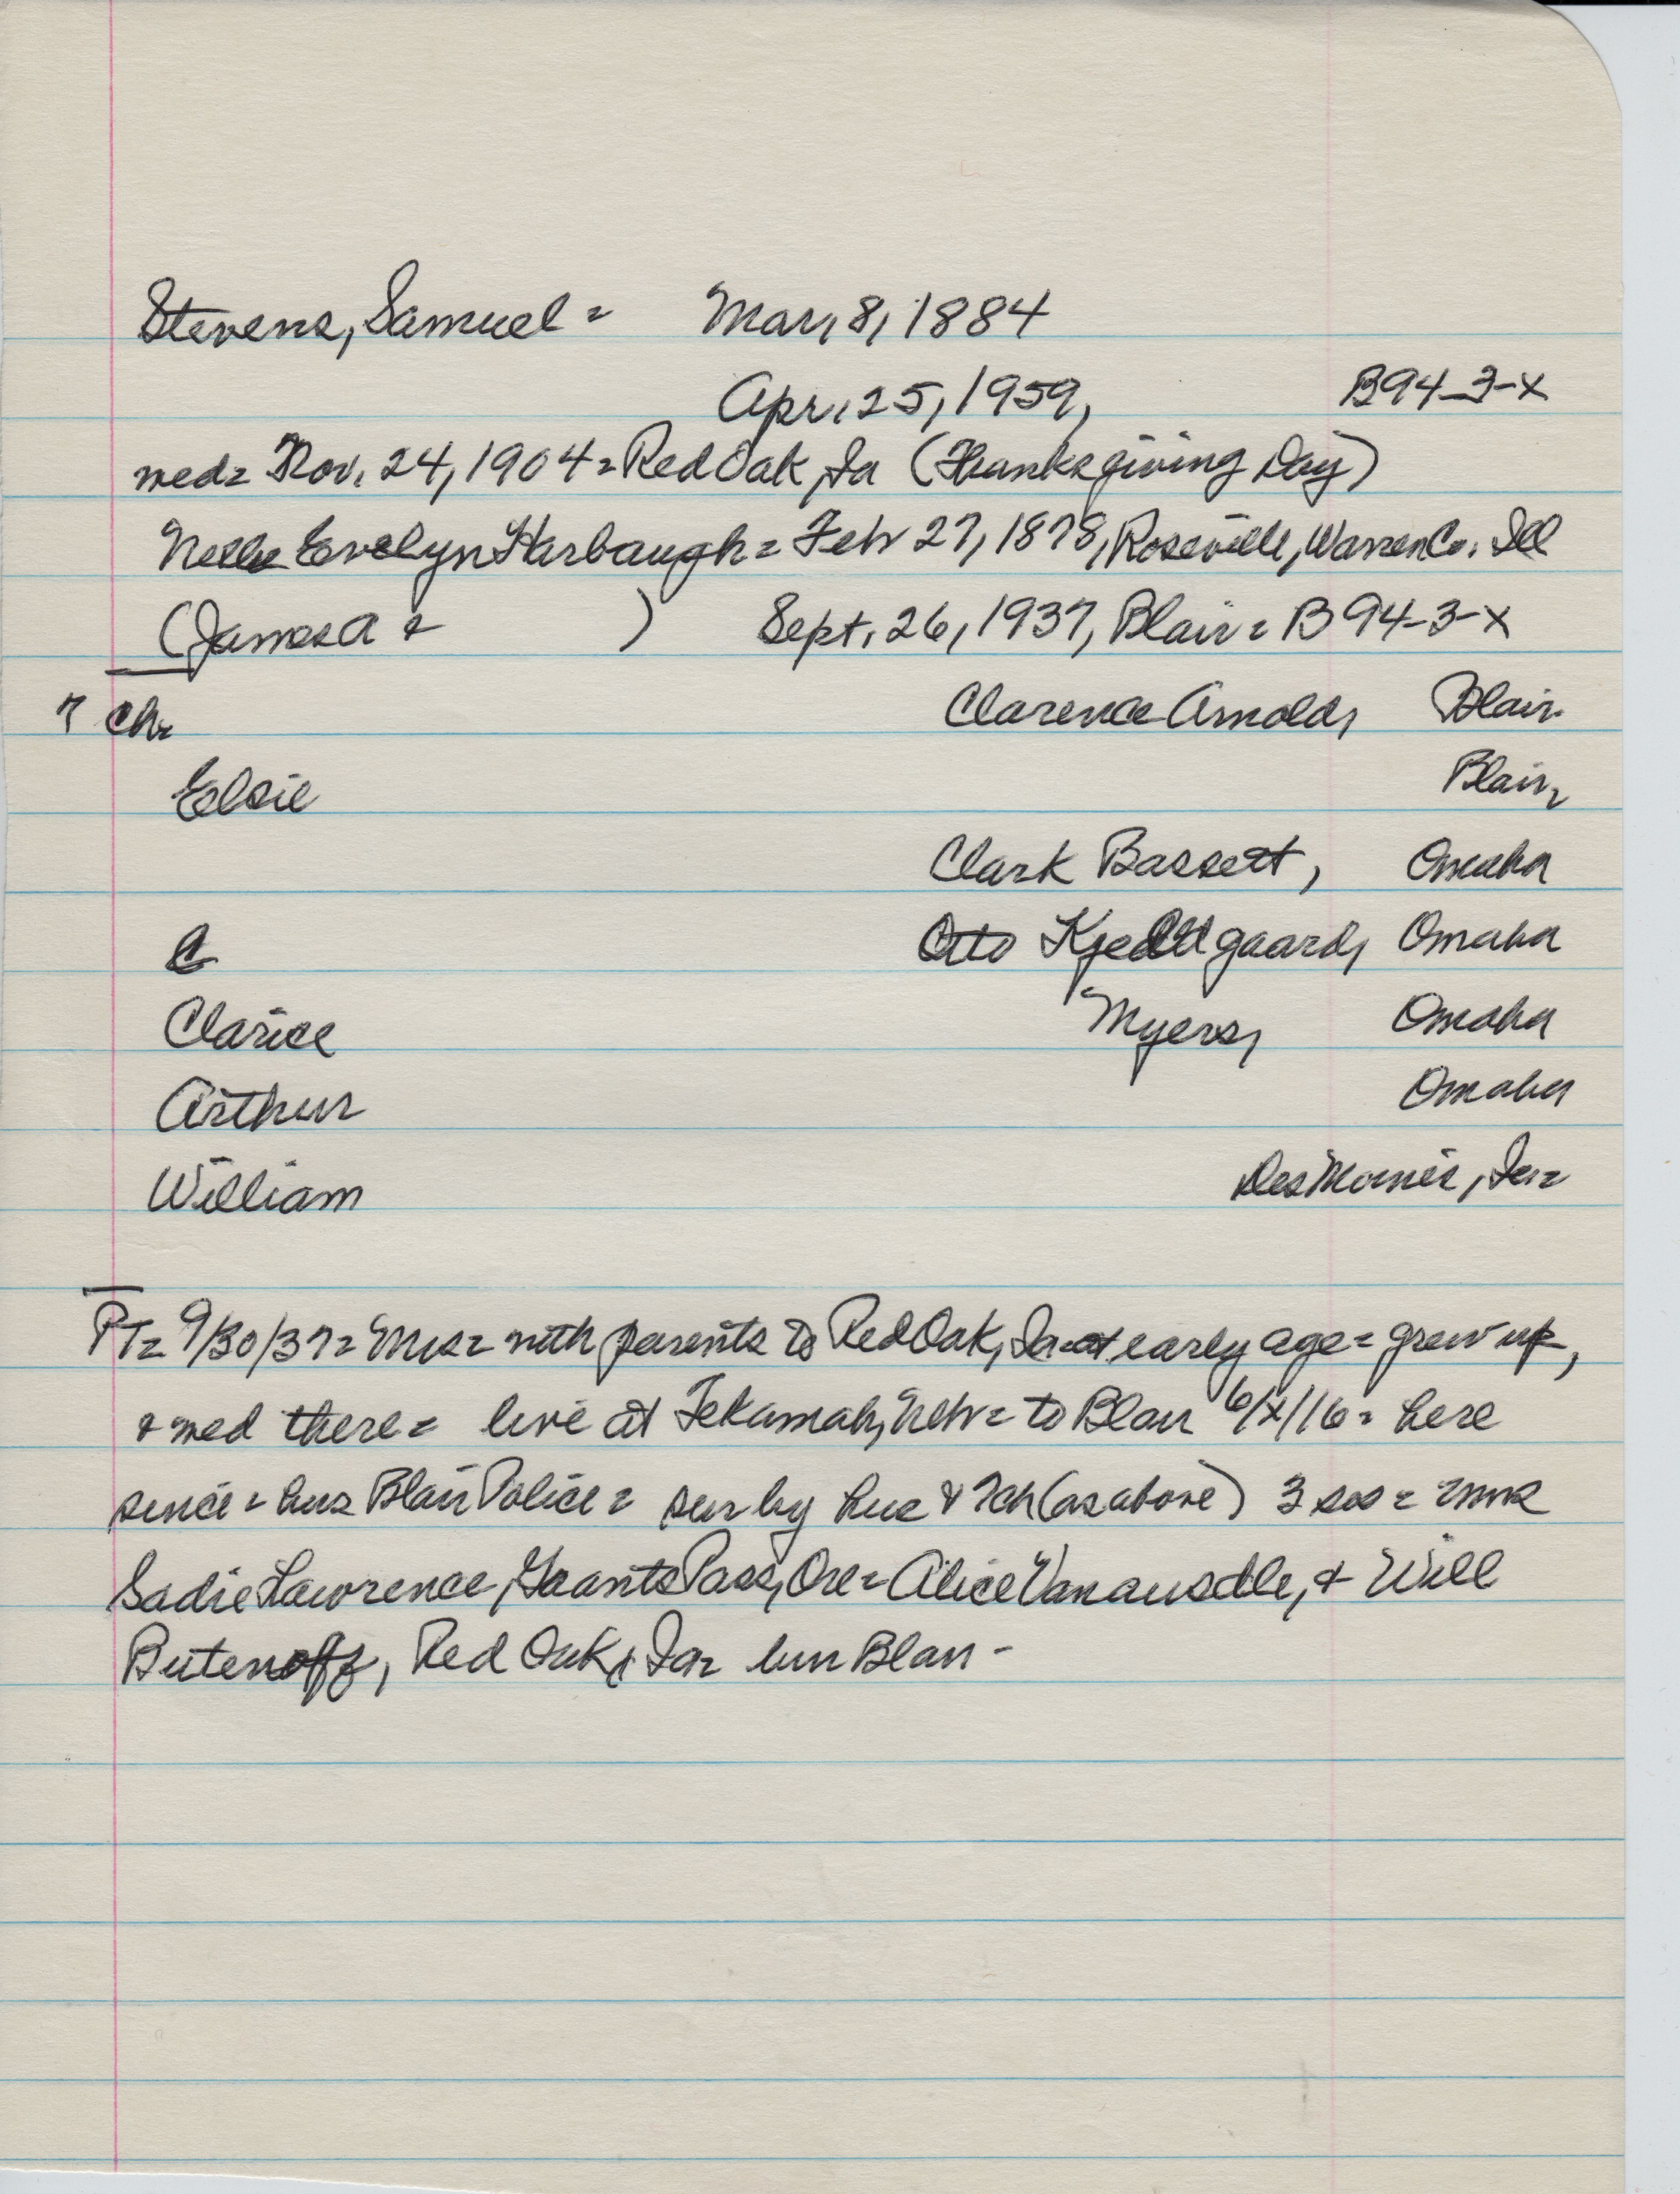 Stevens, Samuel = Mar, 8, 1884
Apr, 25, 1959, B94-3-X
med= Nov. 24, 1904 = Red Oak, Ia (Thanksgiving Day)
Nelle Evelyn Harbaugh = Feb 27, 1878, Roseville, Warren Co. Ill
(James A & ) Sept, 26, 1937, Blair = B94-3-X
7 Ch= Clarence Arnold, Blair.
Elsie Blair,
Clark Bassett, Omaha
C Otto Kjeldgaard, Omaha
Clarice Myers, Omaha
Arthur Omaha
William Des Moines, Ia=
PT= 9/30/37= Mrs= with parents to Red Oak, Ia= at early age = grew up,
& med there = live at Tekamah, Neb = to Blair 6/X/16 = here
since = hus Blair Police = sur by hus & 7ch (as above) 3 sis =
Sadie Lawrence, Grants Pass, Ore = Alice Vanausdle, & Will
Butenoff, Red Oak, Ia= bur Blair -